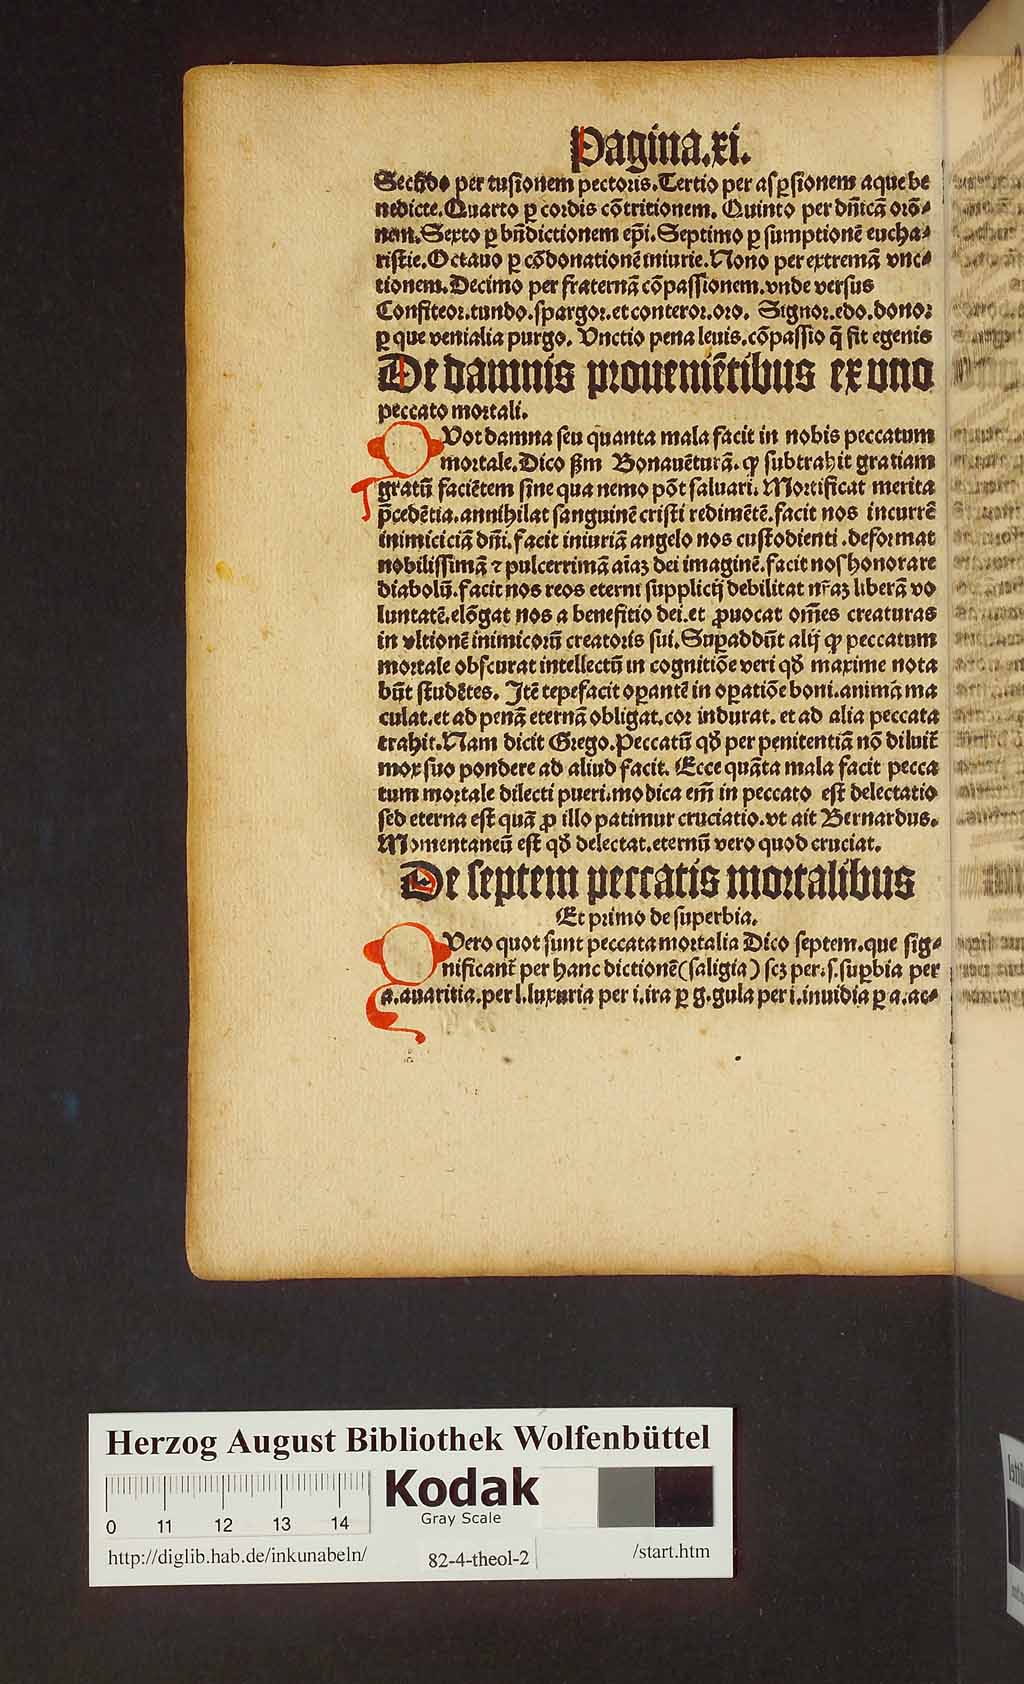 Pagina.xi.
Secūdo per tusionem pectoris.Tertio per aspersionem aque be
nedicte.Quarto ꝑ cordis cōtritionem. Quinto per dn̄icā orō⸗
nem.Sexto ꝑ bn̄dictionem ep̄i.Septimo ꝑ sumptionē eucha⸗
ristie.Octauo ꝑ cōdonationē iniurie.Nono per extremā vnc⸗
tionem.Decimo per fraternā cōpassionem.vnde versus
Confiteor.tundo.spargor.et conteror.oro. Signor.edo.donor
ꝑ que venialia purgo. Vnctio pena leuis.cōpassio q̄ fit egenis
De damnis proueniētibus ex vno
peccato mortali.
Vot damna seu quanta mala facit in nobis peccatum
mortale.Dico ẜm Bonauēturā. ꝙ subtrahit gratiam
gratū faciētem sine qua nemo pōt saluari. Mortificat merita
p̄cedētia.annihilat sanguinē cristi redimētē.facit nos incurrē
inimiciciā dn̄i.facit iniuriā angelo nos custodienti.deformat
nobilissimā ⁊ pulcerrimā aīaꝫ dei imaginē.facit nos honorare
diabolū.facit nos reos eterni supplicij debilitat nr̄aꝫ liberā vo
luntatē.elōgat nos a benefitio dei.et ꝓuocat om̄es creaturas
in vltionē inimicorū creatoris sui.Suꝑaddūt alij ꝙ peccatum
mortale obscurat intellectū in cognitiōe veri qđ maxime nota
būt studētes. Itē tepefacit oꝑantē in oꝑatiōe boni.animā ma
culat.et ad penā eternā obligat.cor indurat. et ad alia peccata
trahit.Nam dicit Grego.Peccatū qđ per penitentiā nō diluit̄
mox suo pondere ad aliud facit. Ecce quāta mala facit pecca
tum mortale dilecti pueri.modica em̄ in peccato est delectatio
sed eterna est quā ꝓ illo patimur cruciatio.vt ait Bernardus.
Momentaneū est qđ delectat.eternū vero quod cruciat.
De septem peccatis mortalibus
Et primo de superbia.
Vero quot sunt peccata mortalia Dico septem.que sig⸗
nificant̄ per hanc dictionē(saligia) scꝫ per.s.suꝑbia per
a.auaritia.per l.luxuria per i.ira ꝑ g.gula per i.inuidia ꝑ a.ac⸗
Herzog August Bibliothek Wolfenbüttel
Kodak
Gray Scale
0 11 12 13 14
http://diglib.hab.de/inkunabeln/ 82-4-theol-2 /start.htm